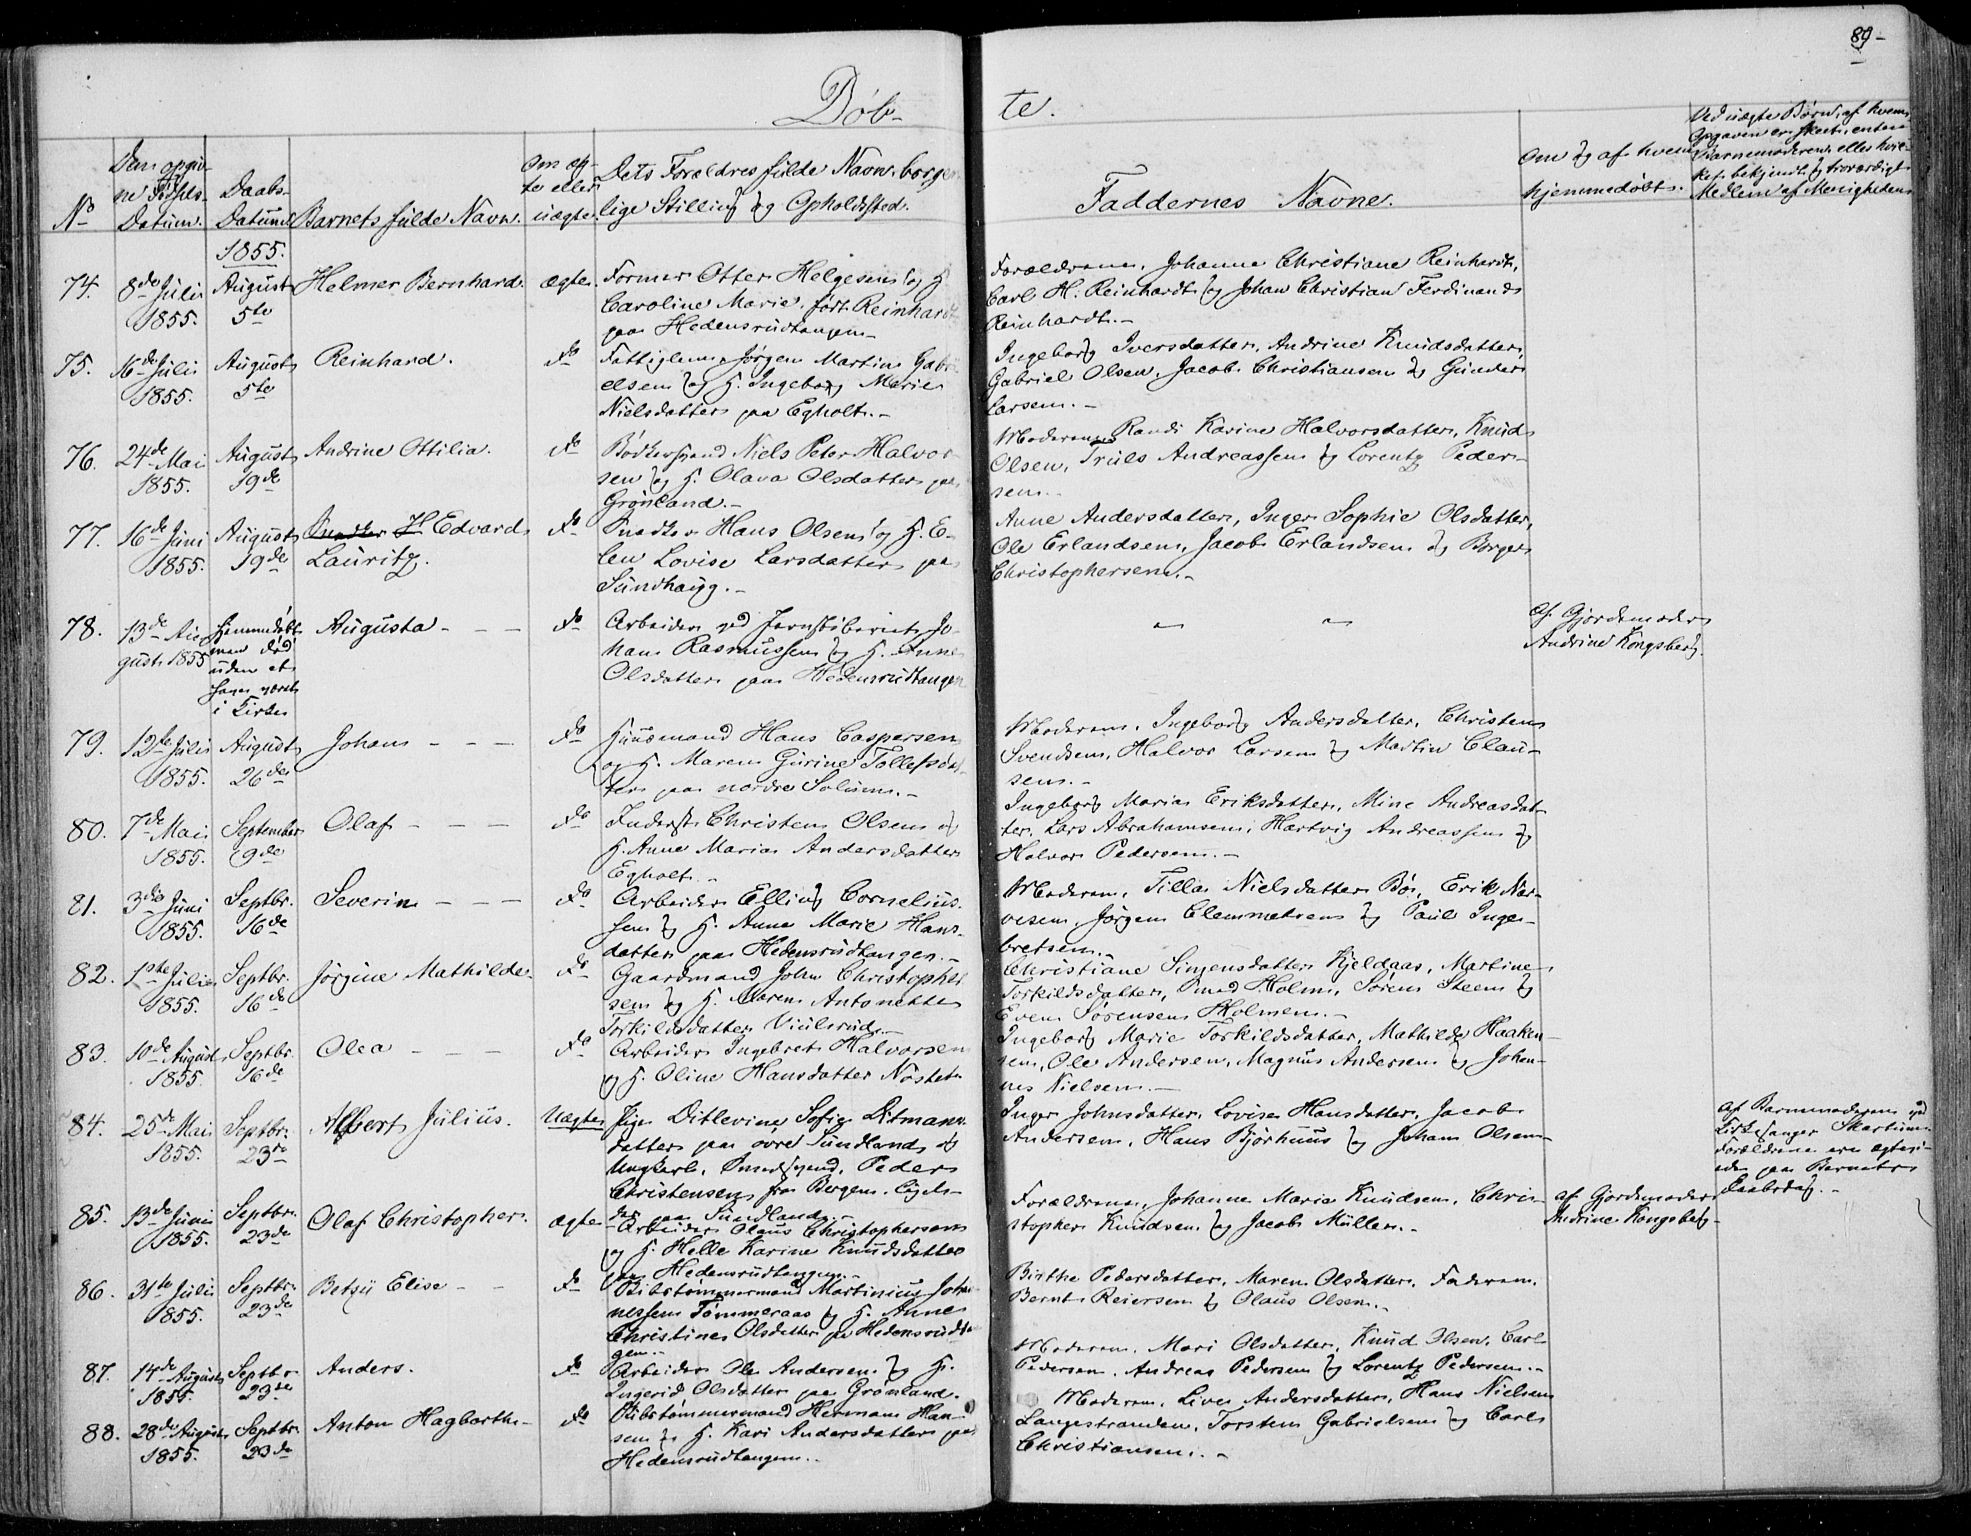 89-
Døb-
te.
No
Den opgiv-
ne Fødsels-
Datum.
Daabs-
Datum
Barnets fulde Navn.
om æg-
te eller
uægte.
Dets Forældres fulde Navn borger-
lige Stilling og Opholdssted.
Faddernes Navne.
Om og af hvem
hjemmedøbt.
Ved uægte Børn, af hvem
Opgaven er skeet, enten
Barnemoderen eller hvil-
ket bekjendt og troværdigt
Medlem af Menigheden
1855.
74.
8de Juli
1855.
August
5te
Helmer Bernhard.
ægte.
Former Otter Helgesen og H.
Caroline Marie født Reinhardt
paa Hedensrudtangen
Forældrene, Johanne Christiane Reinhardt,
Carl H. Reinhardt og Johan Christian Ferdinand
Reinhardt.-
75.
16de Juli
1855.
August
5te
Reinhard.
do
Fattiglem Jørgen Martin Gabri-
elsen og H. Ingeborg Marie
Nielsdatter paa Egholt.-
Ingeborg Iversdatter, Andrine Knudsdatter,
Gabriel Olsen, Jacob Christiansen og Gunder
Larsen.-
76.
24de Mai
1855.
August
19de
Andrine Ottilia.
do
Bødkersvend Niels Peter Halvor-
sen og H. Olava Olsdatter paa
Grønland.-
Moderen, Randi Karine Halvorsdatter, Knud
Olsen, Truls Andreassen og Lorentz Peder-
sen.
77.
16de Juni
1855.
August
19de
Snedker H Edvard
Lauritz.
do
Snedker Hans Olsen og H. E-
len Lovise Larsdatter paa
Sundhaug.-
Anne Andersdatter, Inger Sophie Olsdatter,
Ole Erlandsen, Jacob Erlandsen og Borger
Christophersen.-
78.
13de Au-
gust 1855
Hjemmedøbt
men død
uden at
have været
i Kirke
Augusta - - -
do
Arbeider ved Jernstøberiet Jo-
han Rasmussen og H. Anne
Olsdatter paa Hedensrudtangen
" "
af Gjordemoder
Andrine Kongsberg.
79.
12te Juli
1855.
August
26de
Johan - - -
do
Huusmand Hans Caspersen
og H. Maren Gurine Tollefsdat-
ter paa nordre Solum.-
Moderen, Ingeborg Andersdatter, Christen
Svendsen, Halvor Larsen og Martin Clau-
sen.-
80.
7de Mai
1855.
September
9de
Olaf - - -
do
Inderst Christen Olsen og
H. Anne Maria Andersdatter
Egholt.-
Ingeborg Maria Eriksdatter, Mine Andreasdat-
ter, Lars Abrahamsen, Hartvig Andreassen og
Halvor Pedersen.-
81.
3die Juni
1855.
Septbr.
16de
Severin - - -
do
Arbeider Elling Cornelius-
sen og H. Anne Marie Hans-
datter paa Hedensrudtangen.-
Moderen, Tilla Nielsdatter Bøe, Erik Nar-
vesen, Jørgen Clemmetsen og Paul Inge-
bretsen.-
82.
1ste Juli
1855.
Septbr.
16de
Jørgine Mathilde.
do
Gaardmand John Christopher-
sen og H. Maren Antonette
Torkildsdatter Viulsrud.-
Christiane Simensdatter Kjeldaas, Martine
Torkildsdatter, Smed Holm, Søren Steen og
Even Sørensen Holmen.-
83.
10de August
1855.
Septbr.
16de
Olea - - -
do
Arbeider Ingebret Halvorsen
og H. Oline Hansdatter Nøstet
Ingeborg Marie Torkildsdatter, Mathilde Haaken-
sen, Ole Andersen, Magnus Andersen og Johan-
nes Nielsen.-
84.
25de Mai
1855.
Septbr.
23de
Albert Julius.
Uægte
Pige Ditlevine Sofie Ditmans-
datter paa øvre Sundland og
Ungkarl, Smedsvend, Peder
Christensen fra Bergen, ligele-
des paa Sundland.-
Inger Johnsdatter, Lovise Hansdatter, Jacob
Andersen, Hans Bjørhuus og Johan Olsen
af Barnemoderen ved
Kirkesanger Skartum
Forældrene ere ægtevi-
ede paa Barnets
Daabsdag.-
85.
13de Juni
1855.
Septbr.
23de
Olaf Christopher.
ægte
Arbeider Olaus Christophersen
og H. Helle Karine Knudsdatter
paa Hedensrudtangen.-
Forældrene, Johanne Maria Knudsen, Chris-
topher Knudsen og Jacob Müller.-
af Gjordemoder
Andrine Kongsberg
86.
31te Juli
1855.
Septbr.
23de
Betzy Elise - -
do
Skibstømmermand Martinius Johan-
nessen Tømmeraas og H. Anne
Christine Olsdatter paa Hedensrudtan-
gen.-
Birthe Pedersdatter, Maren Olsdatter, Faderen,
Bernt Reiersen og Olaus Olsen.-
87.
14de August
1855.
Septbr.
23de
Anders.
do
Arbeider Ole Andersen og H.
Ingerid Olsdatter paa Grønland.
Moderen, Mari Olsdatter, Knud Olsen, Carl
Pedersen, Andreas Pedersen og Lorentz Pedersen.-
88.
28de August
1855.
Septbr.
23de
Anton Hagbarth -
do
Skibstømmermand Herman Han-
sen og H. Kari Andersdatter paa
Hedensrudtangen.
Moderen, Live Andersdatter, Hans Nielsen
Langestranden, Torsten Gabrielsen og Carl
Christiansen.-